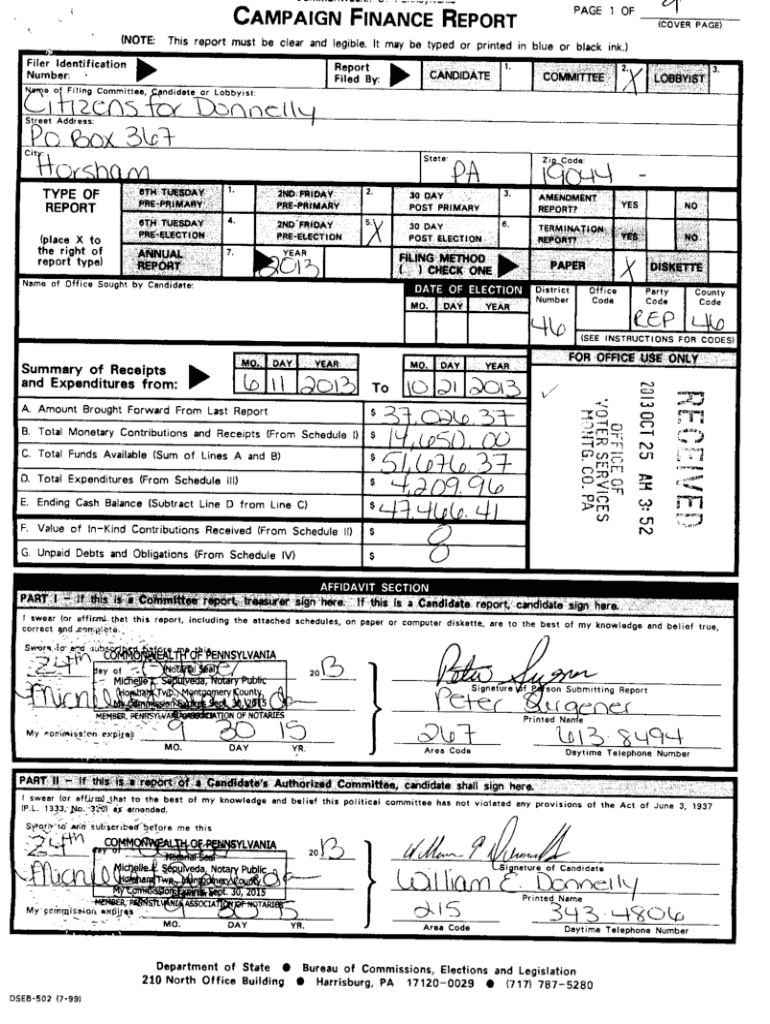 CAMPAIGN FINANCE REPORT
PAGE 1 OF 9
(COVER PAGE)
(NOTE: This report must be clear and legible. It may be typed or printed in blue or black ink.)
Filer Identification Number:
Report Filed By:
CANDIDATE 1.
COMMITTEE 2. X
LOBBYIST 3.
Name of Filing Committee, Candidate or Lobbyist:
Citizens for Donnelly
Street Address:
PO Box 367
City: Horsham State: PA Zip Code: 19044 -
TYPE OF REPORT
(place X to the right of report type)
6TH TUESDAY PRE-PRIMARY 1.
2ND FRIDAY PRE-PRIMARY 2.
30 DAY POST PRIMARY 3.
AMENDMENT REPORT? YES NO
6TH TUESDAY PRE-ELECTION 4.
2ND FRIDAY PRE-ELECTION 5. X
30 DAY POST ELECTION 6.
TERMINATION REPORT? YES NO
ANNUAL REPORT 7.
YEAR 2013
FILING METHOD ( ) CHECK ONE
PAPER X DISKETTE
Name of Office Sought by Candidate:
DATE OF ELECTION
MO. DAY YEAR
District Number 46
Office Code
Party Code REP
County Code 46
(SEE INSTRUCTIONS FOR CODES)
Summary of Receipts and Expenditures from:
MO. DAY YEAR
6 11 2013
TO
MO. DAY YEAR
10 21 2013
FOR OFFICE USE ONLY
A. Amount Brought Forward From Last Report $ 37,026.37
B. Total Monetary Contributions and Receipts (From Schedule I) $ 14,650.00
C. Total Funds Available (Sum of Lines A and B) $ 51,676.37
D. Total Expenditures (From Schedule III) $ 4,209.96
E. Ending Cash Balance (Subtract Line D from Line C) $ 47,466.41
F. Value of In-Kind Contributions Received (From Schedule II) $ 0
G. Unpaid Debts and Obligations (From Schedule IV) $ 0
RECEIVED
2013 OCT 25 AM 3:52
OFFICE OF
VOTER SERVICES
MONTG. CO. PA
AFFIDAVIT SECTION
PART I - If this is a Committee report, treasurer sign here. If this is a Candidate report, candidate sign here.
I swear (or affirm) that this report, including the attached schedules, on paper or computer diskette, are to the best of my knowledge and belief true, correct and complete.
Sworn to and subscribed before me this
24th day of 2013
COMMONWEALTH OF PENNSYLVANIA
Notarial Seal
Michelle L. Sepulveda, Notary Public
Horsham Twp., Montgomery County
My Commission Expires Sept. 30, 2015
MEMBER, PENNSYLVANIA ASSOCIATION OF NOTARIES
My commission expires 9 30 15
MO. DAY YR.
Signature of Person Submitting Report
Peter Sugener
Printed Name
267 613.8494
Area Code Daytime Telephone Number
PART II - If this is a report of a Candidate's Authorized Committee, candidate shall sign here.
I swear (or affirm) that to the best of my knowledge and belief this political committee has not violated any provisions of the Act of June 3, 1937 (P.L. 1333, No. 320) as amended.
Sworn to and subscribed before me this
24th 2013
COMMONWEALTH OF PENNSYLVANIA
Notarial Seal
Michelle L. Sepulveda, Notary Public
Horsham Twp., Montgomery County
My Commission Expires Sept. 30, 2015
MEMBER, PENNSYLVANIA ASSOCIATION OF NOTARIES
My commission expires 9 30 15
MO. DAY YR.
Signature of Candidate
William E. Donnelly
Printed Name
215 343.4806
Area Code Daytime Telephone Number
Department of State ● Bureau of Commissions, Elections and Legislation
210 North Office Building ● Harrisburg, PA 17120-0029 ● (717) 787-5280
DSEB-502 (7-99)